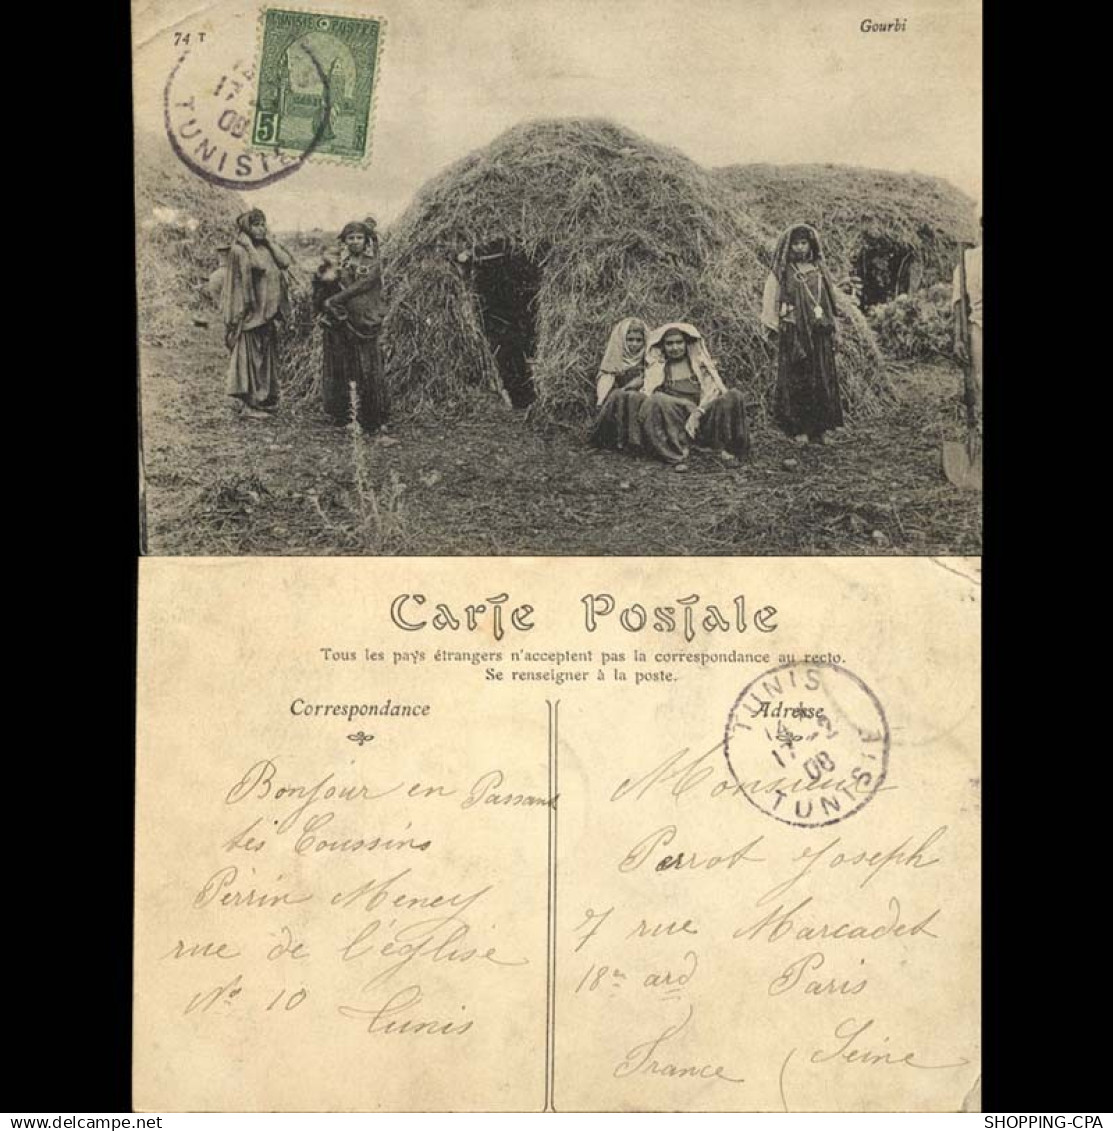 74 T
Gourbi
TUNISIE POSTES
5
17
08
TUNISIE
Carte Postale
Tous les pays étrangers n'acceptent pas la correspondance au recto.
Se renseigner à la poste.
Correspondance
Adresse
TUNIS
17
08
TUNISIE
Bonjour en Passant
tés Coussins
Perrin Meney
rue de l'église
No 10
Tunis
Monsieur
Perrot Joseph
7 rue Marcadet
18me ard Paris
Seine
France
SHOPPING-CPA